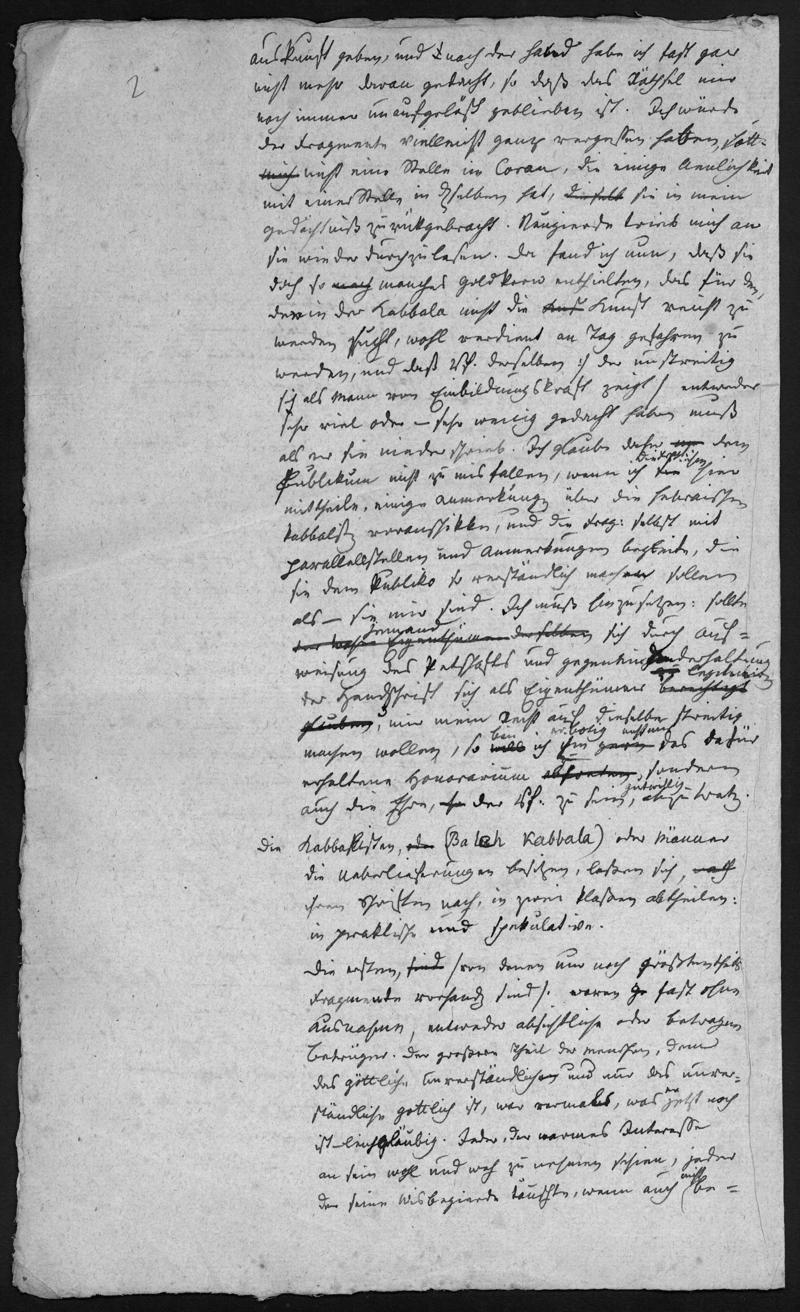 2
auskunft geben, und nach der Hand habe ich fast gar
nicht mehr daran gedacht, so daß das Räthsel mir
noch immer unaufgelößt geblieben ist. Ich würde
der Fragmente vielleicht ganz vergessen haben, hätt=
mich nicht eine Stelle im Coran, die einige Aenlichkeit
mit einer Stelle in dselben hat, dieselb sie in mein
Gedächtniß zurükgebracht. Neugierde trieb mich an
sie wieder durchzulesen. Da fand ich nun, daß sie
doch so manches Goldkorn enthielten, das für den,
der in der Kabbala nicht die Kunst reich zu
werden sucht, wohl verdient an Tag gefahren zu
werden, und daß Vf. derselben :/ der unstreitig
sich als Mann von Einbildungskraft zeigt / entweder
sehr viel oder – sehr wenig gedacht haben muß
als er sie nieder schrieb. Ich glaube daher dem
Publikum nicht zu misfallen, wenn ich sie hier
mittheile, einige Anmerkungen über die hebraischen
Kabbalisten voransschikke, und die Frag: selbst mit
Parallelstellen und Anmerkungen begleite, die
sie dem Publiko so verständlich machen sollen
als – sie mir sind. Ich muß hinzusetzen: sollte
jemand
der wahre Eigenthümer derselben sich durch auf=
weisung des Petschafts und gegeneinanderhaltung
der Handschrift sich als Eigenthümer legitimiren
berechtigt
glauben, mir mein Recht auf dieselbe streitig
machen wollen, so bin ich erbötig nicht nur das dafür
erhaltene Honorarium abzutreten, sondern
auch die Ehre, der Vf. zu sein, abzutretn.
die Kabbalisten, oder (Baleh Kabbala) oder Männer
die Ueberlieferungen besitzen, laßen sich, nach
ihren Schriften nach, in zwei Klaßen abtheilen:
in praktische und spekulative.
Die ersten, sind /von denen nur noch größtentheils
Fragmente vorhandn sind/. waren fast ohne
Ausnahme, entweder absichtliche oder betrogene
Betrüger. Der größere Theil der Menschen, dem
das göttliche unverständlichen und nur das unver=
ständliche gottlich ist, war vormals, was er jetzt noch
ist – leichgläubig. Jeder, der warmes Interesse
an sein wohl und weh zu nehmen schien, jeder
der seine Wisbegierde täuschte, wenn auch nicht be=